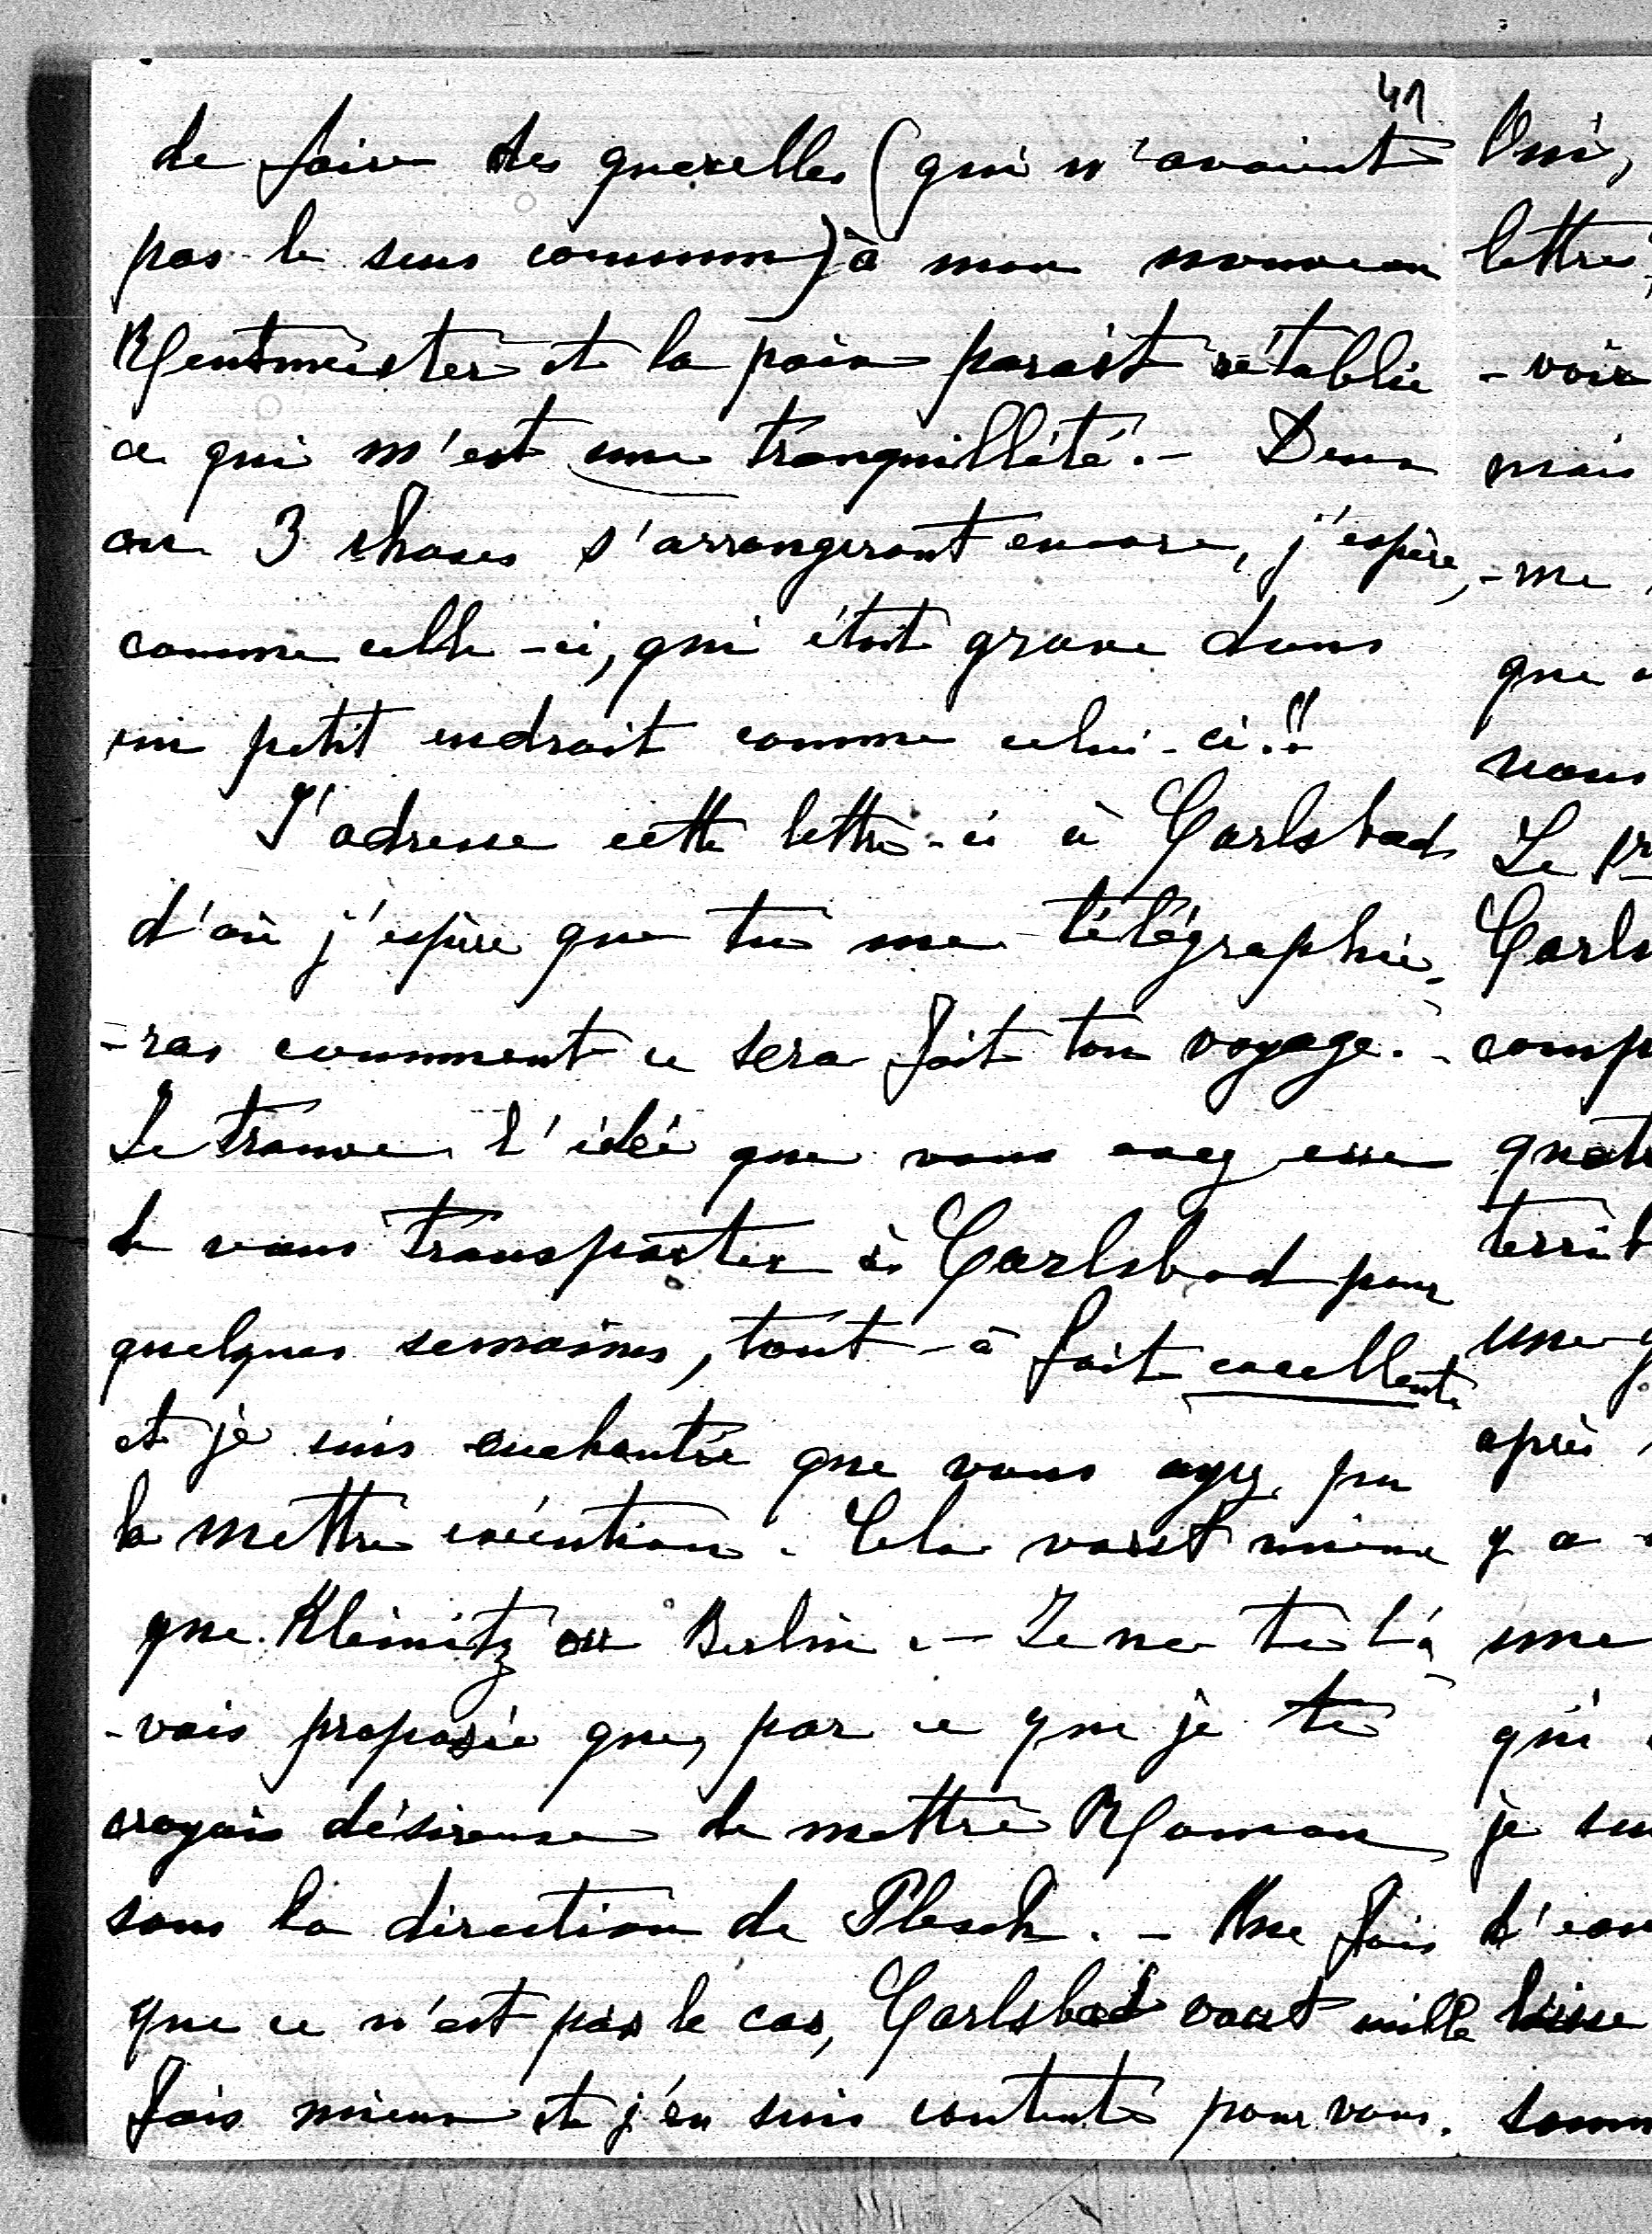 41
de faire des querelles (qui n'avaient
pas le sens commun) à mon nouveau
Rentmeister et la paix parait rétablie
ce qui m'est une tranquillité. - Deux
ou 3 choses s'arrangeront encore, j'espère,
comme celle-ci, qui était grave dans
un petit endroit comme celui-ci!! -
J'adresse cette lettre-ci à Carlsbad
d'où j'espère que tu me télégraphie-
-ras comment ce sera fait ton voyage. -
Je trouve l'idée que vous avez eue
de vous transporter à Carlsbad pour
quelques semaines, tout-à fait excellente
et je suis enchantée que vous ayez pu
la mettre exécution. Cela vaut mieux
que Kleinitz ou Berlin. - Je ne te l'a
-vais proposée que, par ce que je te
croyais désireuse de mettre Roman
sous la direction de Plesch. - Une fois
que ce n'est pas le cas, Carlsbad vaut mille
fois mieux et j'en suis contente pour vous.
Oui,
lettre
-voir
mais
-me
que
nous
Le pr
Carls
comp
quatr
terrib
une
après
y a
une
qui
je su
d'eau
somm